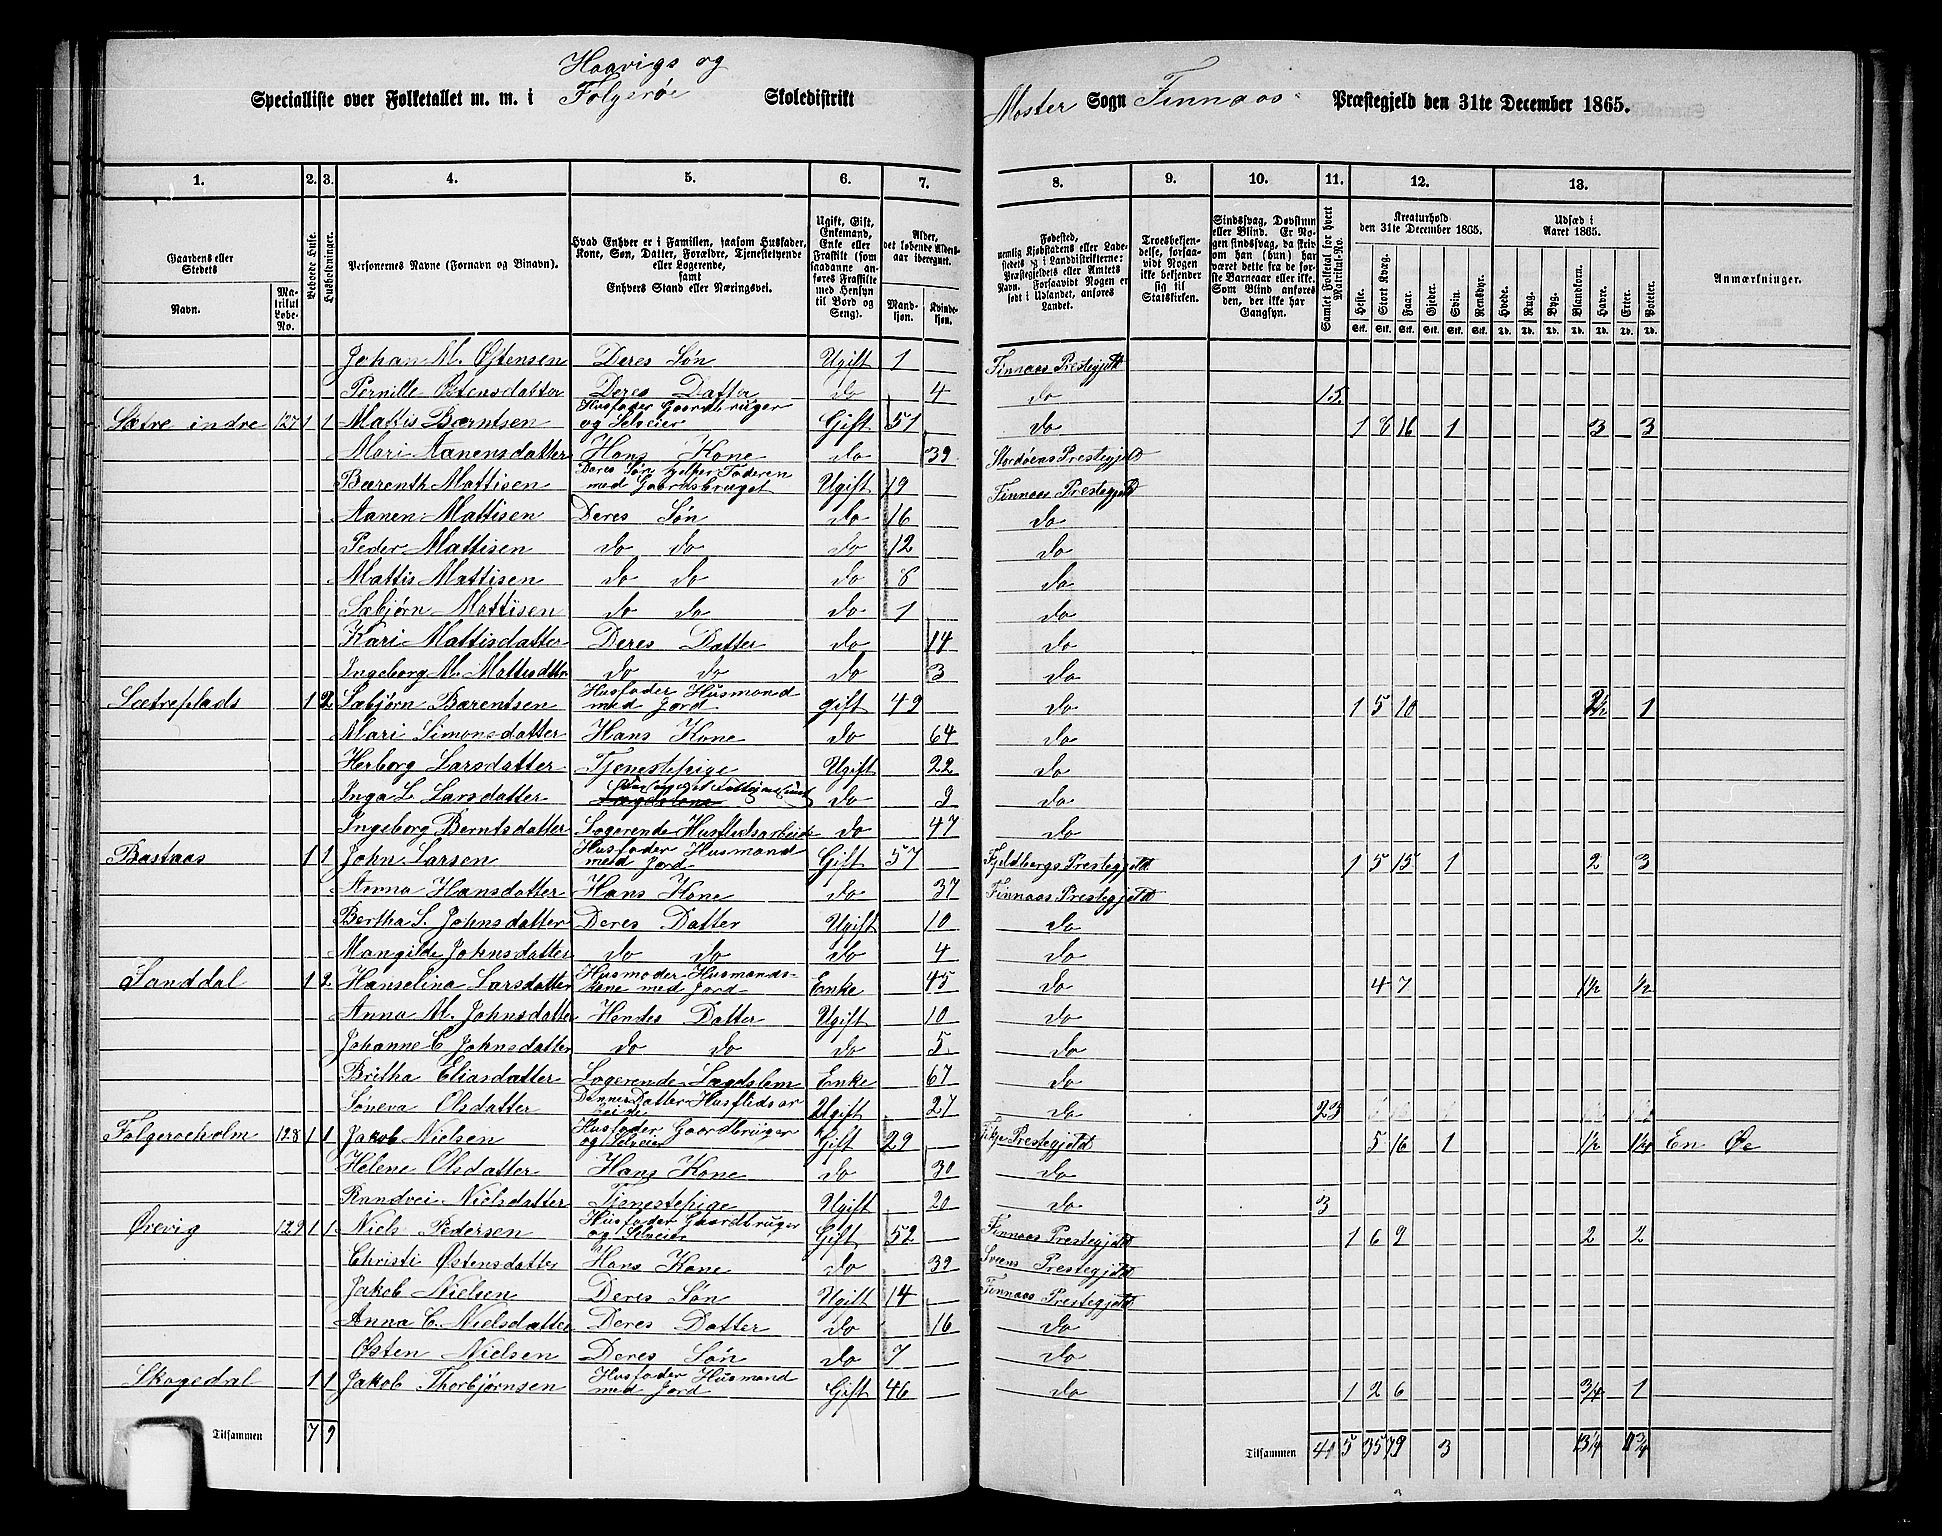 Specialliste over Folketallet m. m. i Haavigs og Folgerøe Skoledistrikt
Moster Sogn Finnaas Præstegjeld den 31te December 1865.
1. 2. 3. 4. 5. 6. 7. 8. 9. 10. 11. 12. 13.
Gaardens eller Stedets
Navn.
Matrikul Løbe-No.
Beboede Huse.
Husholdninger.
Personernes Navne (Fornavn og Binavn).
Hvad Enhver er i Familien, saasom Husfader, Kone, Søn, Datter, Forældre, Tjenestetyende eller Logerende, samt Enhvers Stand eller Næringsvei.
Ugift, Gift, Enkemand, Enke eller Fraskilt (som saadanne anføres Fraskilte med Hensyn til Bord og Seng).
Alder, det løbende Aldersaar iberegnet.
Mandkjøn. Kvindekjøn.
Fødested, nemlig Kjøbstadens eller Ladestedets og i Landdistrikterne: Præstegjeldets eller Amtets Navn. Forsaavidt Nogen er født i Udlandet, anføres Landet.
Troesbekjendelse, forsaavidt Nogen ikke bekjender sig til Statskirken.
Sindssvag, Døvstum eller Blind. Er Nogen sindssvag, da skrives om han (hun) har været dette fra de første Barneaar eller ikke. Som Blind anføres den, der ikke har Gangsyn.
Samlet Folketal for hvert Matrikul-No.
Kreaturhold den 31te December 1865.
Heste. Stort Kvæg. Faar. Gjeder. Svin. Rensdyr.
Udsæd i Aaret 1865.
Hvede. Rug. Byg. Blandkorn. Havre. Erter. Poteter.
Anmærkninger.
Johan M. Østensen Deres Søn Ugift 1 Finnaas Prestegjeld
Pernille Østensdatter Deres Datter do 4 do 15
Sætre indre 127 1 1 Mattis Barntsen Husfader Gaardbruger og Selveier Gift 51 do 1 8 16 1 3 3
Mari Aanensdatter Hans Kone do 39 Stordøens Prestegjeld
Barenth Mattisen Deres Søn hjelper Faderen med Gaardsbruget Ugift 19 Finnaas Prestegjeld
Aanen Mattisen Deres Søn do 16 do
Peder Mattisen do do do 12 do
Mattis Mattisen do do do 8 do
Sæbjørn Mattisen do do do 1 do
Kari Mattisdatter Deres Datter do 14 do
Ingeborg M. Mattisdtter do do do 3 do
Sætreplads 1 2 Sæbjørn Barentsen Husfader Husmand med Jord gift 49 do 1 5 10 2½ 1
Mari Simonsdatter Hans Kone do 64 do
Herborg Larsdatter Tjenestepige Ugift 22 do
Inga L Larsdatter do 9 do
Ingeborg Berntsdatter Logerende Husflidsarbeide do 47 do
Bastaas 1 1 John Larsen Husfader Husmand med Jord Gift 57 Fjeldbergs Prestegjeld 1 5 15 1 2 3
Anna Hansdatter Hans Kone do 37 Finnaas Prestegjeld
Bertha S. Johnsdatter Deres Datter Ugift 10 do
Mangilde Johnsdatter do do do 4 do
Sanddal 1 2 Hanselina Larsdatter Husmoder Husmandskone med Jord Enke 45 do 4 7 1½ ½
Anna M. Johnsdatter Hendes Datter Ugift 10 do
Johanne C Johnsdatter do do do 5 do
Britha Eliasdatter Logerende Lægdslem Enke 67 do
Søneva Olsdatter Dennes Datter Husflidsarbeide Ugift 27 do 23
Folgeroeholm 128 1 1 Jakob Nielsen Husfader Gaardbruger og Selveier Gift 29 Prestegjeld 5 16 1 1½ 1¼ En Øe
Helene Olsdatter Hans Kone do 30 do
Randvei Nielsdatter Tjenestepige Ugift 20 do 3
Øvevig 129 1 1 Niels Pedersen Husfader Gaardbruger og Selveier Gift 52 Finnaas Prestegjeld 1 6 9 2 2
Christi Østensdatter Hans Kone do 39 Sveens Prestegjeld
Jakob Nielsen Deres Søn Ugift 14 Finnaas Prestegjeld
Anna C. Nielsdatter Deres Datter do 16 do
Østen Nielsen Deres Søn do 7 do
Skogedal 1 1 Jakob Thorbjørnsen Husfader Husmand med Jord Gift 46 do 1 2 6 3/4 1
Tilsammen 7 9 Tilsammen 41 5 35 79 3 13¼ 11¾